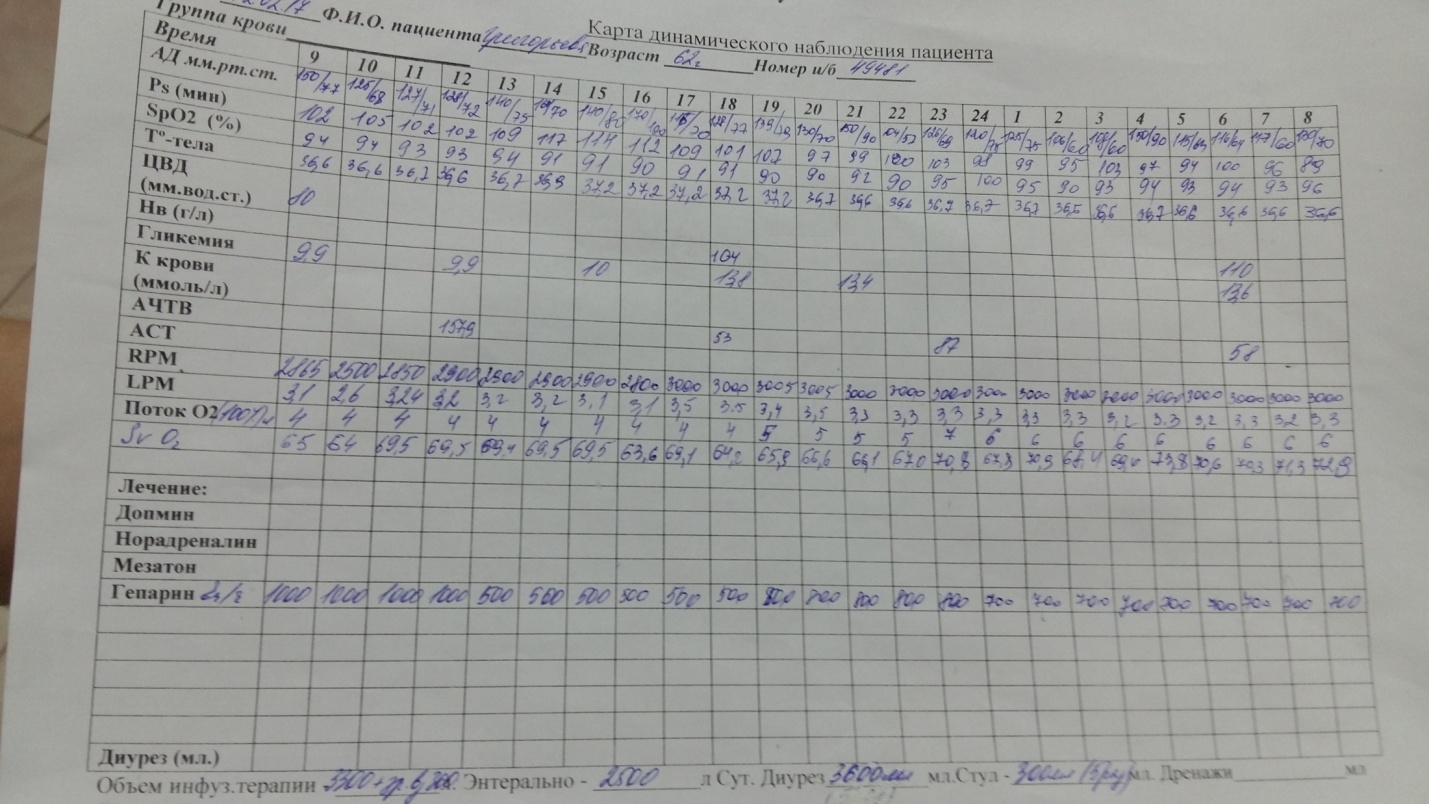 Карта динамического наблюдения пациента
Группа крови Ф.И.О. пациента Возраст 62г Номер и/б 49481
Время 9 10 11 12 13 14 15 16 17 18 19 20 21 22 23 24 1 2 3 4 5 6 7 8
АД мм.рт.ст. 150/77 125/68 127/71 128/72 140/75 140/80 128/77 130/70 150/90 104/53 126/69 125/75 106/60 108/60 130/90 116/64 117/60 139/70
Ps (мин) 102 105 102 102 109 117 114 112 109 101 102 97 99 100 103 98 99 95 103 97 94 100 96 89
SpO2 (%) 94 94 93 93 94 91 91 90 91 91 90 90 92 90 95 100 95 90 93 94 93 94 93 96
Т°-тела 36,6 36,6 36,7 36,6 36,7 36,9 37,2 37,2 37,2 37,2 37,2 36,7 36,6 36,6 36,7 36,7 36,7 36,6 36,6 36,7 36,6 36,6 36,6 36,6
ЦВД
(мм.вод.ст.) 80
Нв (г/л) 104 110
Гликемия 9,9 9,9 10 13,8 13,4 13,6
К крови
(ммоль/л)
АЧТВ 157,9 53 87 58
АСТ
RPM 2865 2500 2850 2900 2900 2900 2900 2800 3000 3000 3005 3005 3000 3000 3000 3000 3000 3000 3000 3000 3000 3000 3000 3000
LPM 3,1 2,6 3,24 3,2 3,2 3,2 3,1 3,1 3,5 3.5 3,4 3,5 3,3 3,3 3,3 3,3 3,3 3,3 3,2 3.3 3,2 3,3 3,2 3,3
Поток О2(100%) 4 4 4 4 4 4 4 4 4 4 5 5 5 5 7 6 6 6 6 6 6 6 6 6
Sv O2 65 64 69,5 69,5 69,4 69,5 69,5 63,6 69,1 64,2 65,8 66,6 66,1 67,0 70,8 67,8 70,9 68,4 69,4 73,8 70,6 70,3 71,3 72,9
Лечение:
Допмин
Норадреналин
Мезатон
Гепарин 1000 1000 1000 1000 500 500 500 500 500 500 800 800 800 800 800 700 700 700 700 700 700 700 700 700
Диурез (мл.)
Объем инфуз.терапии Энтерально - 2500 л Сут. Диурез 3600мл мл.Стул - 300мл мл. Дренажи мл